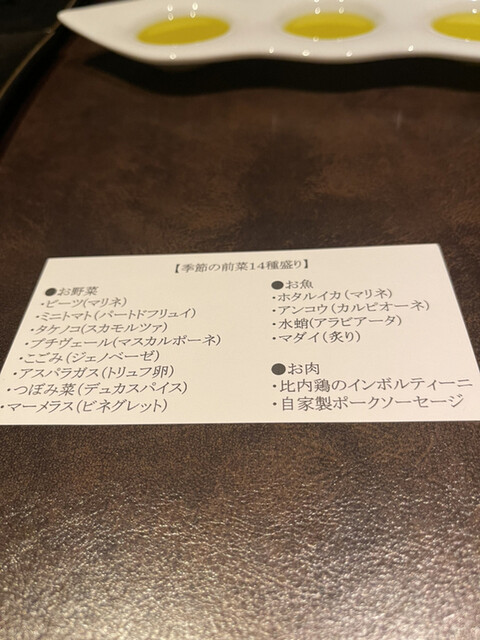 【季節の前菜14種盛り】
●お野菜
・ビーツ(マリネ)
・ミニトマト(パートドフリュイ)
・タケノコ(スカモルツァ)
・プチヴェール(マスカルポーネ)
・こごみ(ジェノベーゼ)
・アスパラガス(トリュフ卵)
・つぼみ菜(デュカスパイス)
・マーメラス(ビネグレット)
●お魚
・ホタルイカ(マリネ)
・アンコウ(カルピオーネ)
・水蛸(アラビアータ)
・マダイ(炙り)
●お肉
・比内鶏のインボルティーニ
・自家製ポークソーセージ